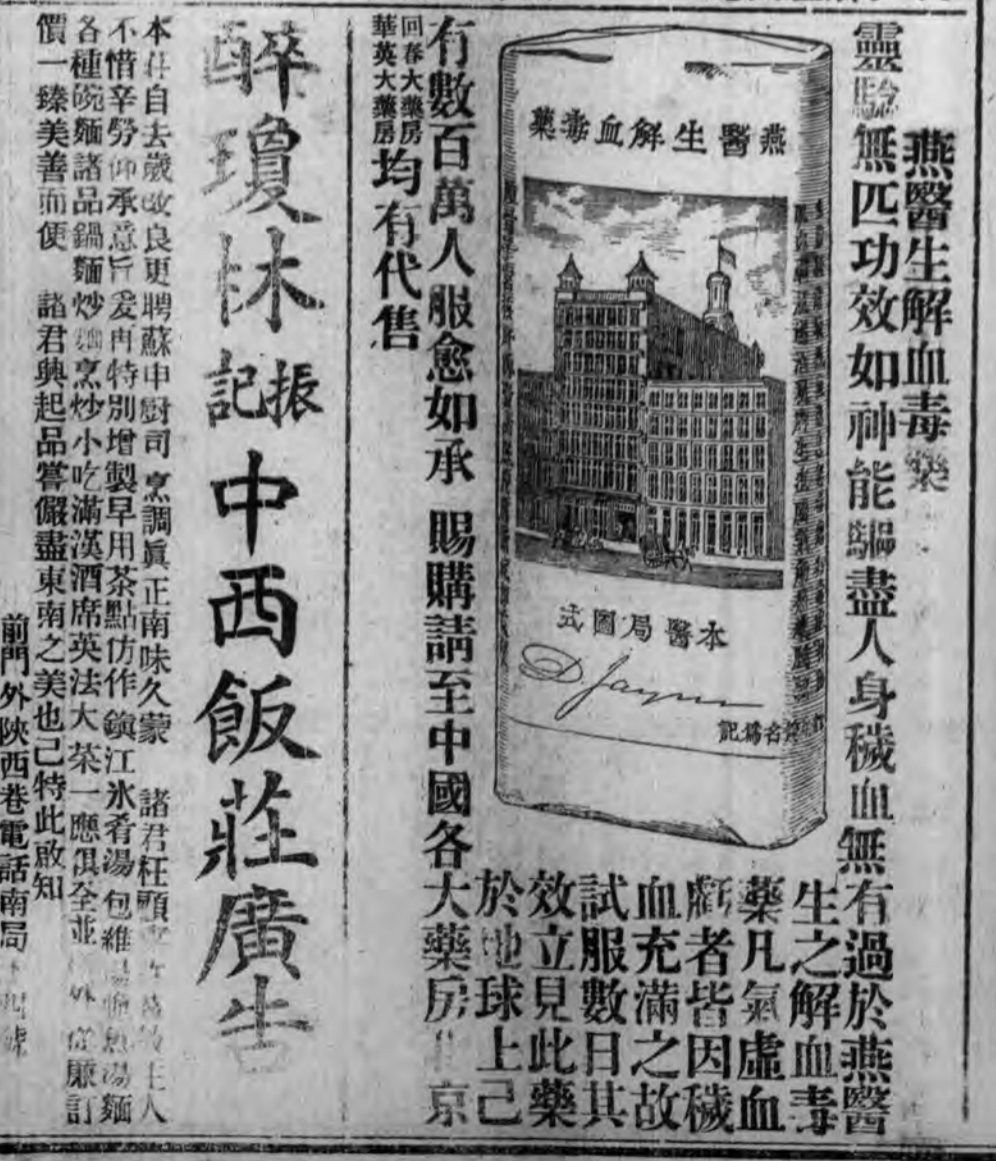 燕醫生解血毒藥
靈驗無匹功效如神能驅盡人身穢血無有過於燕醫
生之解血毒
藥凡氣虛血
虧者皆因穢
血充滿之故
試服數日其
效立見此藥
於地球上己
有數百萬人服愈如承 賜購請至中國各大藥房 京
回春大藥房
華英大藥房
均有代售
燕醫生解血毒藥
本醫局圖式
D Jayne
名爲記
醉瓊林
振記
中西飯莊廣告
本 自去歲改良更聘蘇申廚司烹調眞正南味久蒙 諸君枉顧 主人
不惜辛勞仰承意旨爰再特別增製早用茶點仿作鎭江氷肴湯包維 湯麵
各種碗麵諸品鍋麵炒 烹炒小吃滿漢酒席英法大菜一應俱全並 廉訂
價一臻美善而便 諸君興起品嘗儼盡東南之美也己特此啟知
前門外陝西巷電話南局